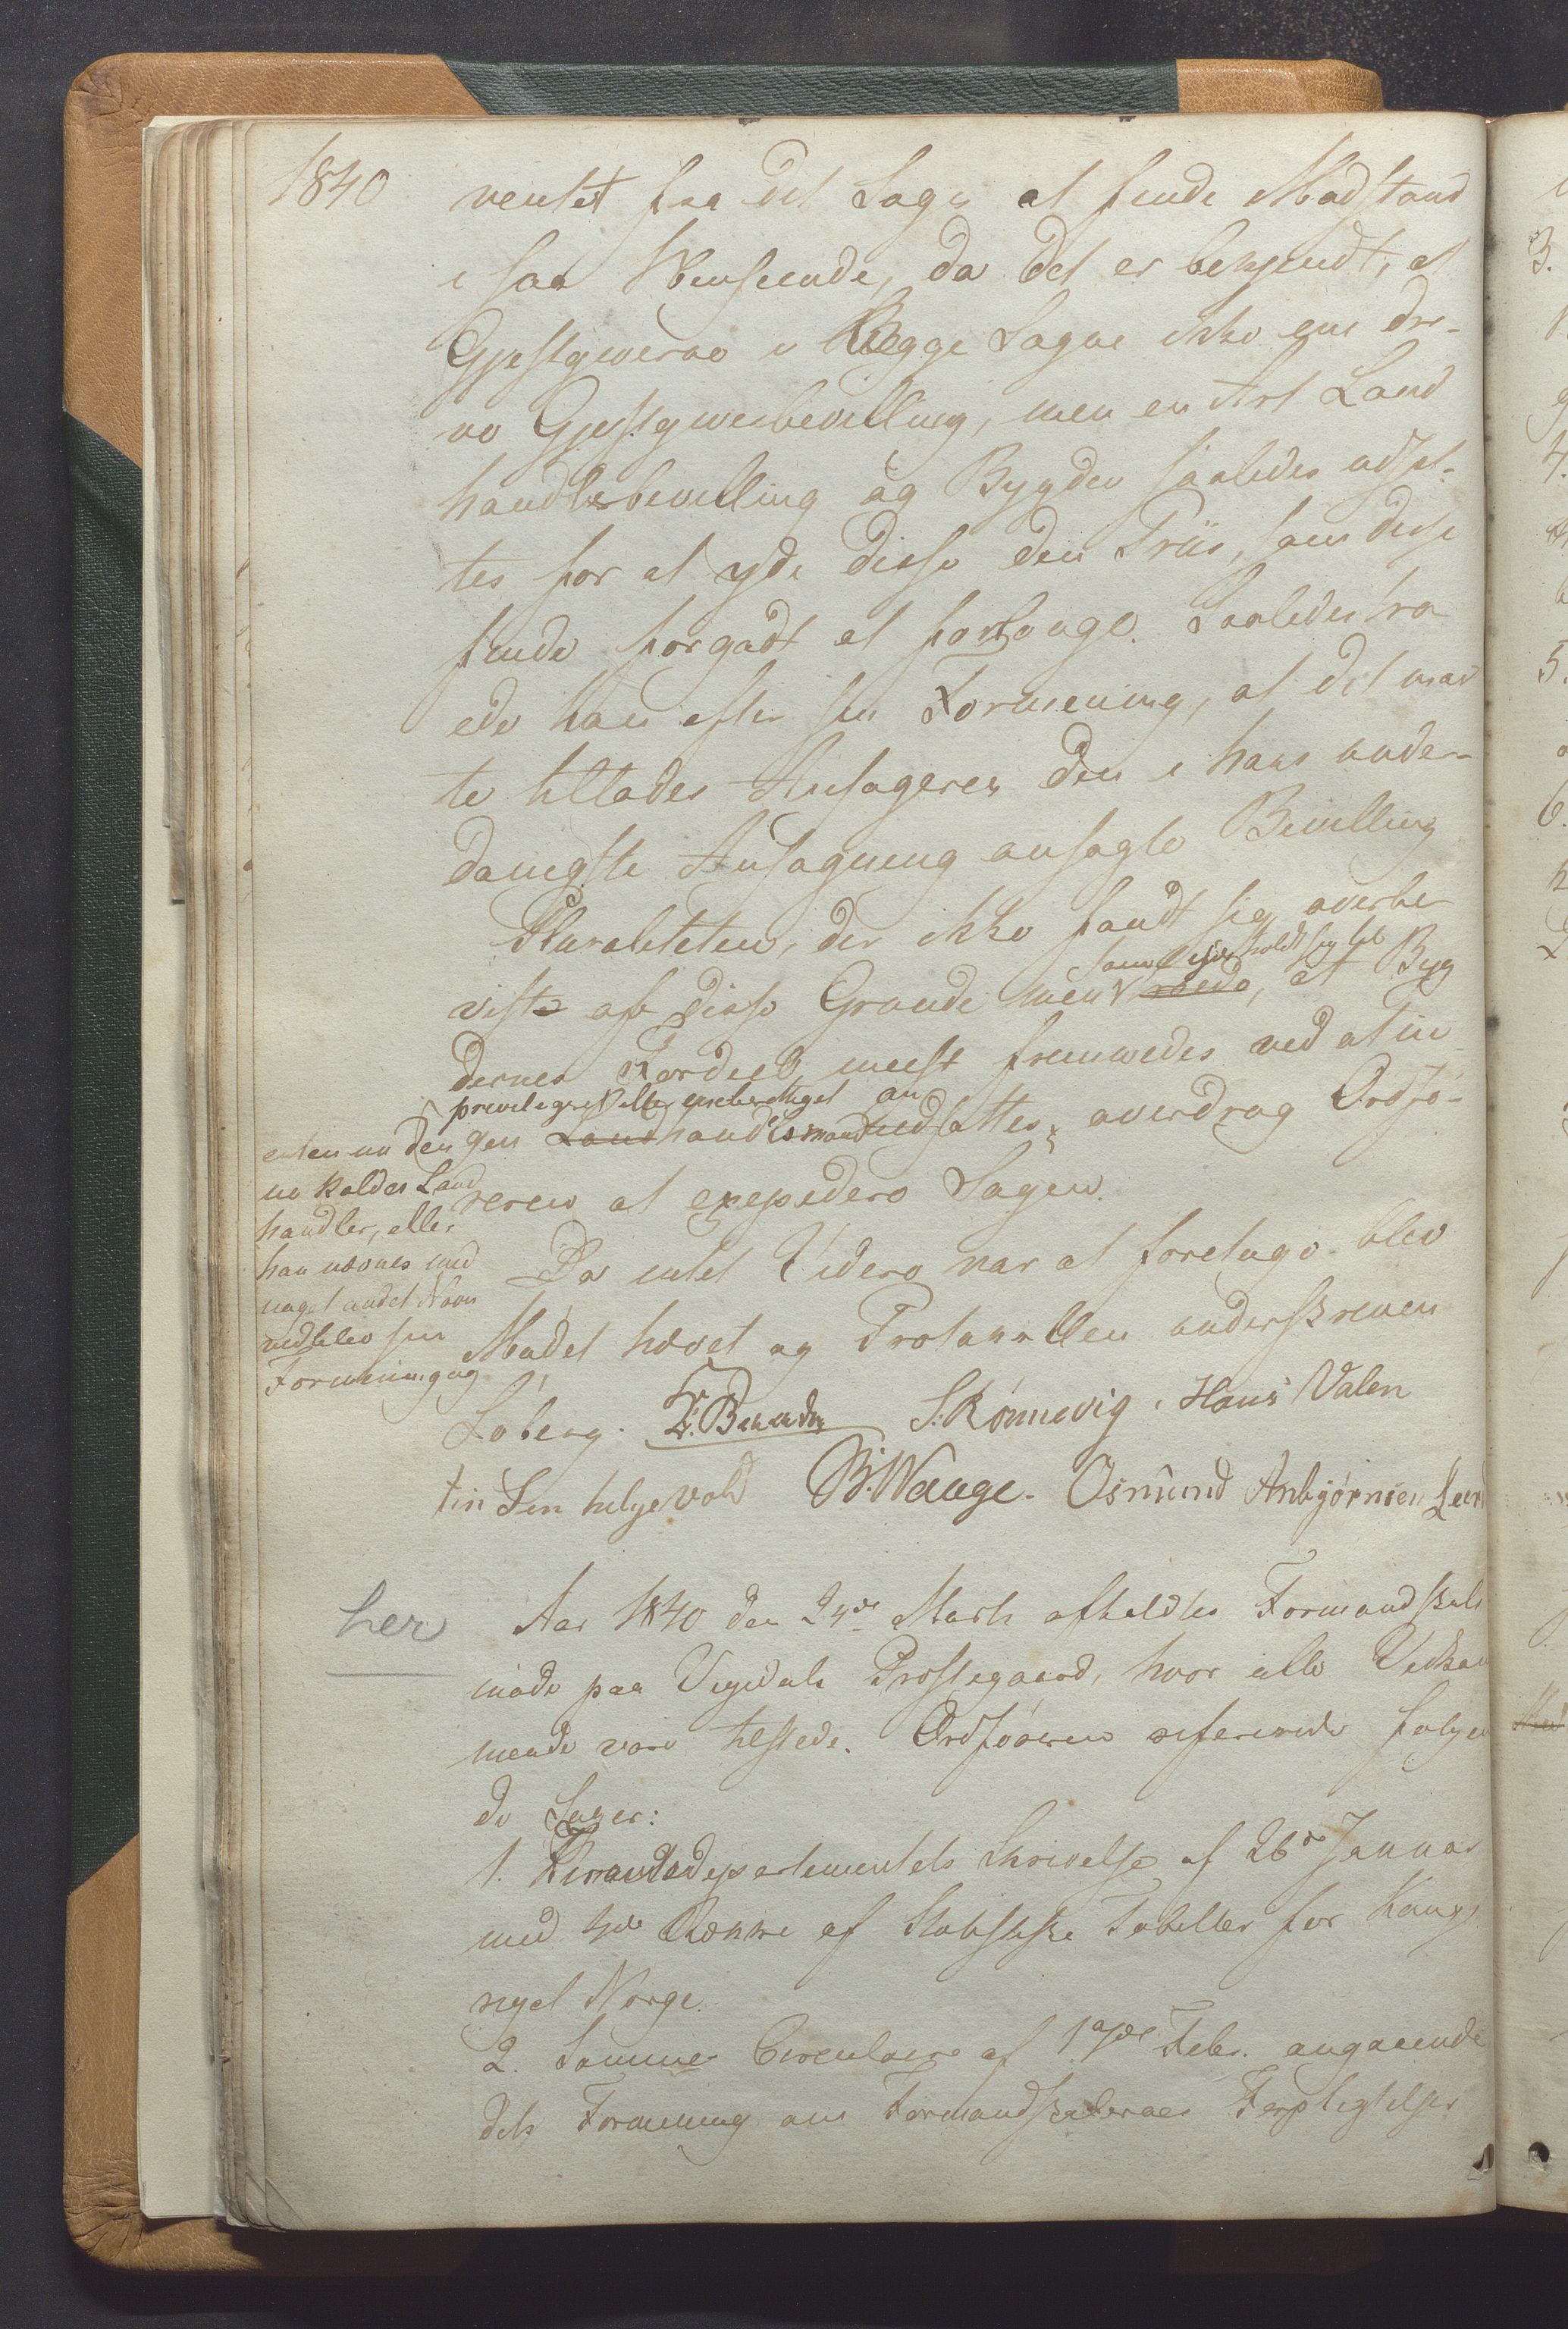 1840
ventet fra det Sogn at finde Modstand
i saa Henseende, da det er bekjendt, at
Gjestgiverne i Begge Sogne ikke som dri-
ve Gjestgiverbevilling, men en Art Land
handlerbevilling og Bygden saaledes udset-
tes for at yde disse den Priis, som disse
finde forgodt at forlange. Saaledes tro
ede han efter sin Formening, at det maat
te tillades Ansøgeren den i hans under-
danigste Ansøgning ansøgte Bevilling
Pluraliteten, der ikke fandt sig overbe-
som holdt sig til
viist af disse Grunde men troede, at Byg
dernes Fordeel meest fremmedes ved at in
privilegeret eller uberettiget an
gen Landhandelsmand udsattes, overdrog Ordfø-
reren at expedere Sagen.
enten nu den
nu kaldes Land
handler, eller
han nævnes med
noget andet Navn
ved blev sin
Formening og
Da intet Videre var at foretage blev
Mødet hævet og Protokollen underskreven
Løberg. S. Rønnevig. Hans Valen
helgevold B. Waage. Osmund Anbjørnsen
her
Aar 1840 den 24de Marts afholdtes Formandskabs
møde paa Vigedals Prestegaard, hvor alle Vedkom
mende vare tilstede. Ordføreren refererede følgen
de Sager:
1. Finandsdepartementets Skrivelse af 26de Januar
med 4de Række af statistiske Tabeller for Konge
riget Norge.
2. Sammes Circulaire af 17de Febr. angaaende
dets Formening om Formandskabernes Forpligtelser